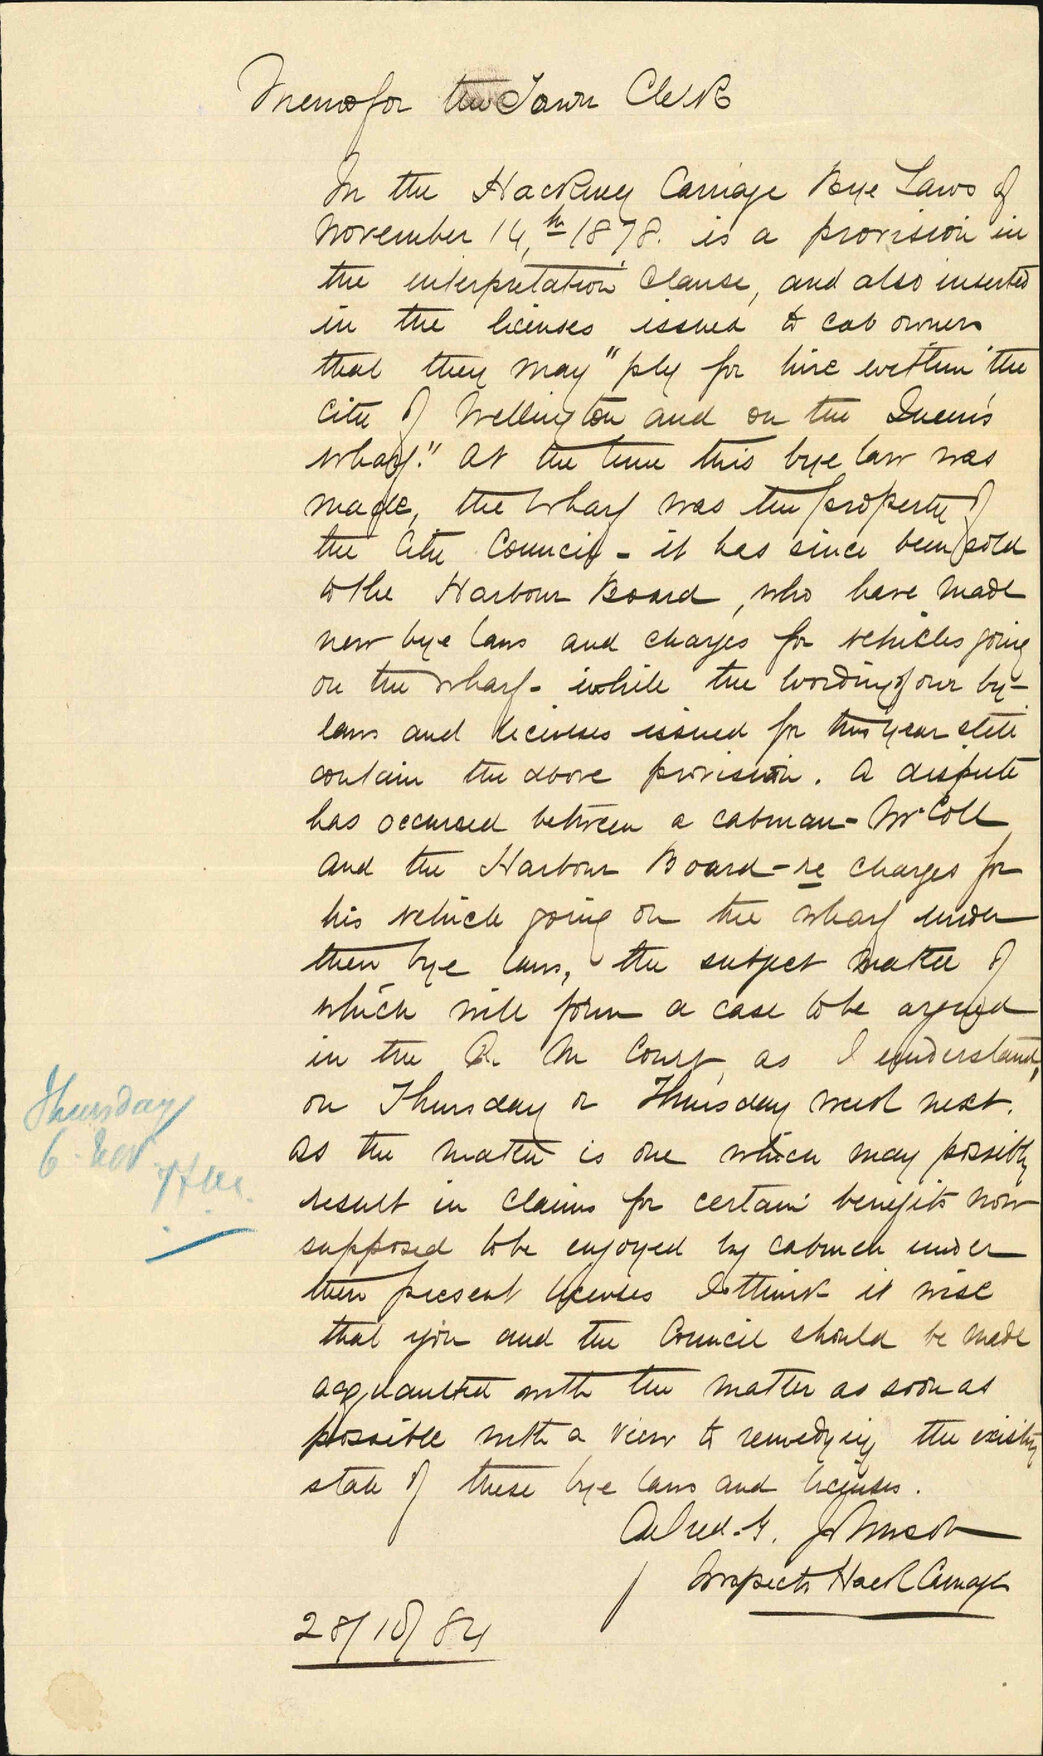 Memo for the Town Clerk
In the Hackney Carriage Bye Laws of
November 14,th 1878. is a provision in
the interpretation clause, and also inserted
in the licenses issued to cab owners
that they may "ply for hire within the
City of Wellington and on the Queen's
wharf." At the time this bye law was
made, the wharf was the property of
the City Council - it has since been sold
to the Harbour Board, who have made
new bye laws and charges for vehicles going
on the wharf - while the wording of our by-
laws and licenses issued for this year still
contain the above provision. A dispute
has occurred between a cabman - McColl
and the Harbour Board - re charges for
his vehicle going on the wharf under
their bye laws, the subject matter of
which will form a case to be argued
in the R. M Court, as I understand,
on Thursday or Thursday week next.
As the matter is one which may possibly
result in claims for certain benefits now
supposed to be enjoyed by cabmen under
their present licenses I think it wise
that you and the Council should be made
acquainted with the matter as soon as
possible with a view to remedying the existing
state of these bye laws and licenses.
Alfred. G. Johnson
Inspector Hack Carriages
28/10/84
Thursday
6 - Nov